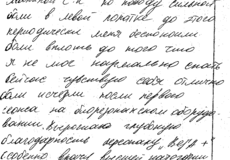 по поводу сильной
боли в левой лопатке до этого
периодически меня беспокоили
боли вплоть до того что
я не мог нормально спать
сейчас чувствую себя отлично
боли исчезли после первого
сеанса на биорезонансном оборудо-
вании. Выражаю глубокую
благодарность персоналу
особенно